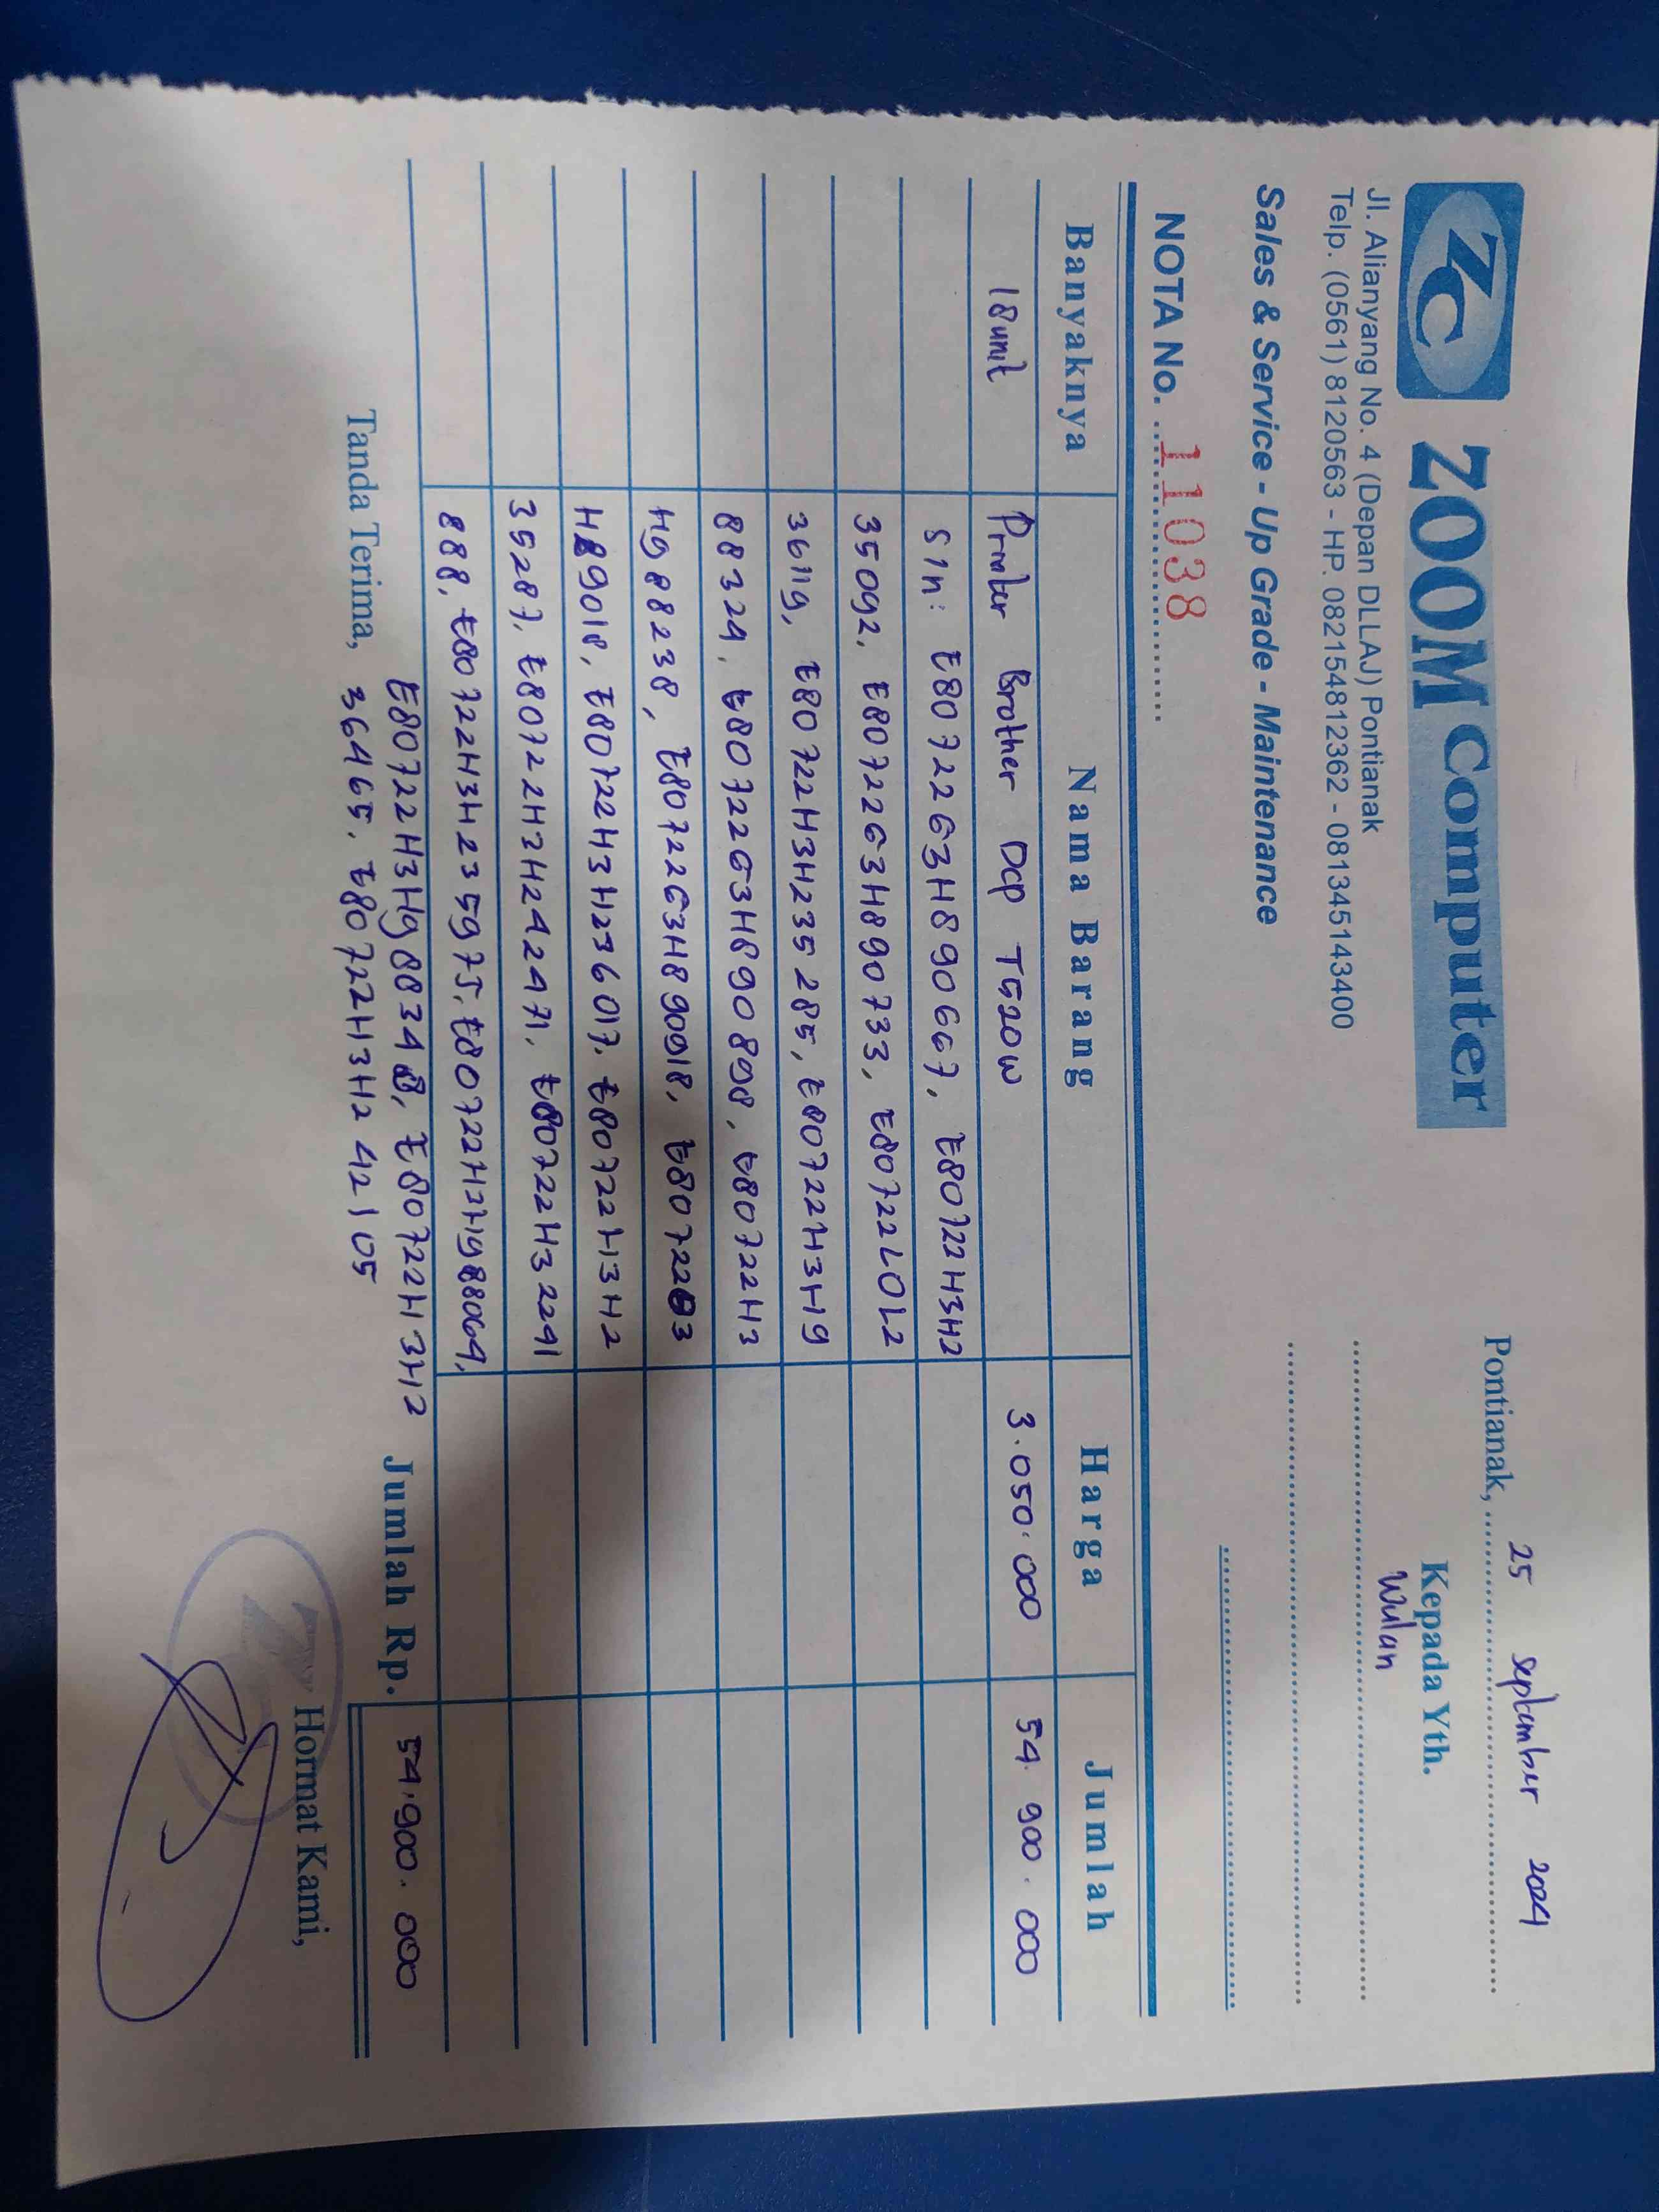 ZC ZOOM Computer
Jl. Alianyang No. 4 (Depan DLLAJ) Pontianak
Telp. (0561) 8120563 - HP. 082154812362 - 081345143400
Sales & Service - Up Grade - Maintenance
Pontianak, 25 September 2024
Kepada Yth.
Wulan
NOTA No. 11038
Banyaknya Nama Barang Harga Jumlah
18 unit Printer Brother Dcp T520W 3.050.000 54.900.000
S/n: E80722G3H890667, E80722H3H2
35092, E80722G3H890733, E80722L0L2
36119, E80722H3H235285, E80722H3H9
88324, E80722G3H890898, E80722H3
H988238, E80722G3H890918, E80722G3
H89018, E80722H3H236017, E80722H3H2
35287, E80722H2H242471, E80722H32291
888, E80722H3H235975, E80722H2H988064,
E80722H3H988348, E80722H3H2
36465, E80722H3H242105
Jumlah Rp. 54.900.000
Tanda Terima,
Hormat Kami,